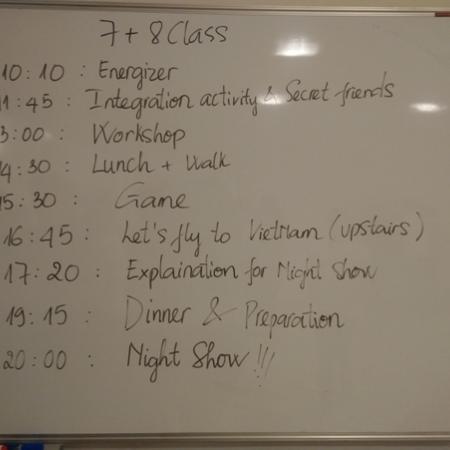 7 + 8 Class
10:10 : Energizer
11:45 : Integration activity & Secret friends
3:00 : Workshop
4:30 : Lunch + Walk
15:30 : Game
16:45 : Let's fly to VietNam (upstairs)
17:20 : Explaination for Night Show
19:15 : Dinner & Preparation
20:00 : Night Show !!!